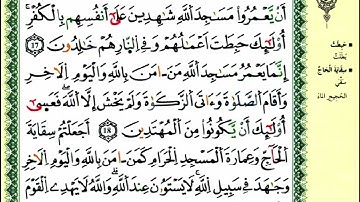 أَن يَّعْمُرُوا۟ مَسَٰجِدَ ٱللَّهِ شَٰهِدِينَ عَلَىٰٓ أَنفُسِهِم بِٱلْكُفْرِ ۚ
أُو۟لَٰٓئِكَ حَبِطَتْ أَعْمَٰلُهُمْ وَفِى ٱلنَّارِ هُمْ خَٰلِدُونَ 17
إِنَّمَا يَعْمُرُ مَسَٰجِدَ ٱللَّهِ مَنْ ءَامَنَ بِٱللَّهِ وَٱلْيَوْمِ ٱلْءَاخِرِ
وَأَقَامَ ٱلصَّلَوٰةَ وَءَاتَى ٱلزَّكَوٰةَ وَلَمْ يَخْشَ إِلَّا ٱللَّهَ ۖ فَعَسَىٰٓ
أُو۟لَٰٓئِكَ أَن يَّكُونُوا۟ مِنَ ٱلْمُهْتَدِينَ 18 أَجَعَلْتُمْ سِقَايَةَ
ٱلْحَآجِّ وَعِمَارَةَ ٱلْمَسْجِدِ ٱلْحَرَامِ كَمَنْ ءَامَنَ بِٱللَّهِ وَٱلْيَوْمِ ٱلْءَاخِرِ
وَجَٰهَدَ فِى سَبِيلِ ٱللَّهِ ۚ لَا يَسْتَوُۥنَ عِندَ ٱللَّهِ ۗ وَٱللَّهُ لَا يَهْدِى ٱلْقَوْمَ
حَبِطَتْ
بَطَلَتْ
سِقَايَةَ الْحَاجِّ
سَقْيَ
الحَجِيجِ الماءَ